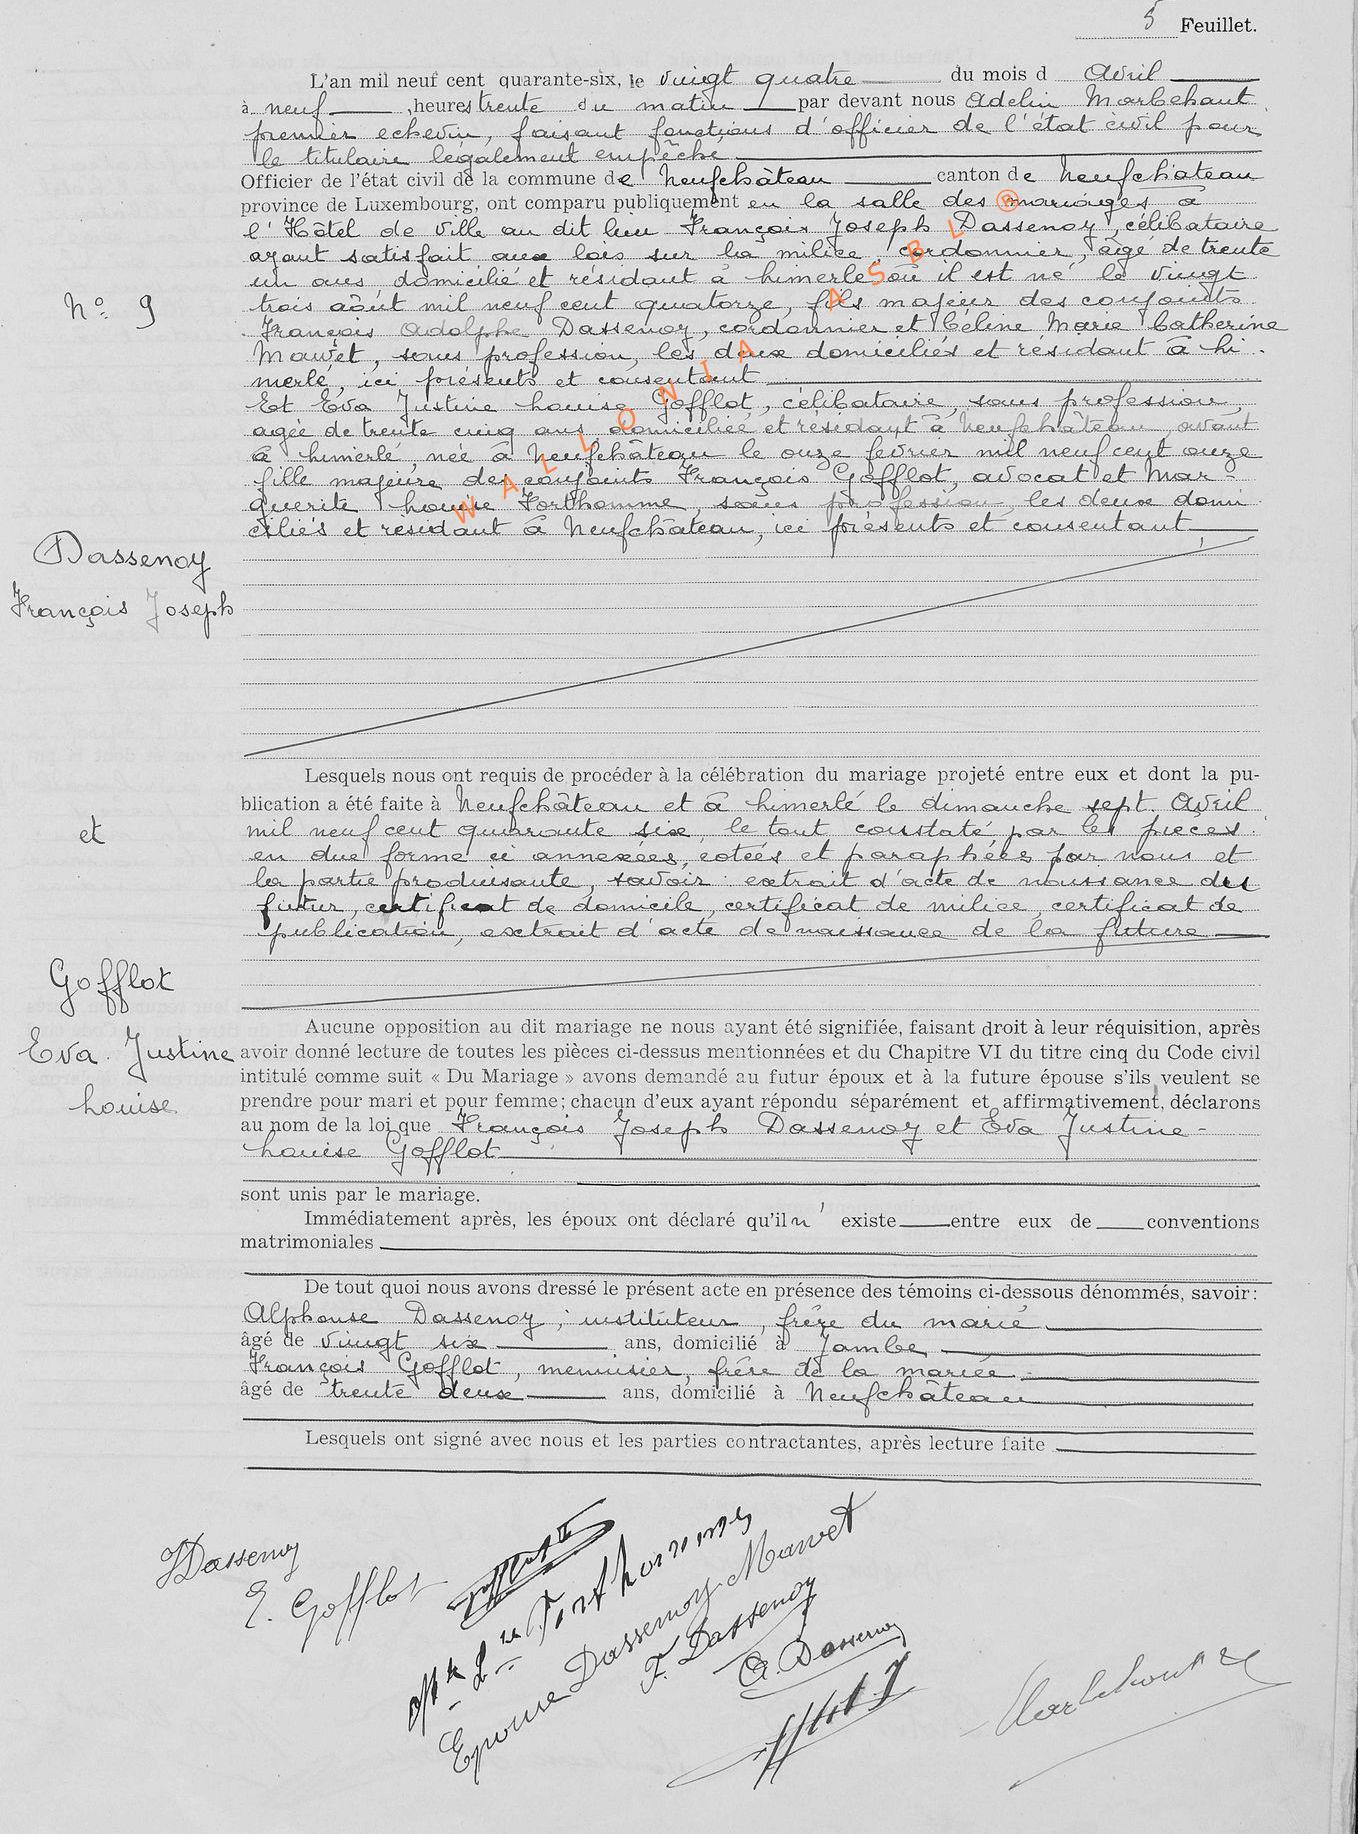 5 Feuillet.
L'an mil neuf cent quarante-six, le vingt quatre du mois d Avril
à neuf heures trente du matin par devant nous Adelin Marbehant
premier échevin, faisant fonctions d'officier de l'état civil pour
le titulaire légalement empêché
Officier de l'état civil de la commune de Neufchâteau canton de Neufchâteau
province de Luxembourg, ont comparu publiquement en la salle des mariages à
l'Hôtel de ville au dit lieu François Joseph Dassenoy, célibataire
ayant satisfait aux lois sur la milice, cordonnier, âgé de trente
un ans, domicilié et résidant à himerlé où il est né le vingt
trois août mil neuf cent quatorze, fils majeur des conjoints
François Adolphe Dassenoy, cordonnier et Céline Marie Catherine
Mawet, sans profession, les deux domiciliés et résidant à hi
merlé, ici présents et consentant
Et Eva Justine Louise Gofflot, célibataire, sans profession,
agée de trente cinq ans domiciliée et résidant à Neufchâteau, avant
à himerlé, née à Neufchâteau le onze fevrier mil neuf cent onze
fille majeure des conjoints François Gofflot, avocat et Mar-
guerite Louise Forthomme, sans profession, les deux domi
ciliés et residant à Neufchâteau, ici présents et consentant
WALLONIA ASBL ®
N° 9
Dassenoy
François Joseph
et
Gofflot
Eva Justine
Louise
Lesquels nous ont requis de procéder à la célébration du mariage projeté entre eux et dont la pu-
blication a été faite à Neufchâteau et à himerlé le dimanche sept Avril
mil neuf cent quarante six, le tout constaté par les pièces
en due forme ci annexées, cotées et paraphées par nous et
la partie produisante, savoir : extrait d'acte de naissance du
futur, certificat de domicile, certificat de milice, certificat de
publication, extrait d'acte de naissance de la future
Aucune opposition au dit mariage ne nous ayant été signifiée, faisant droit à leur réquisition, après
avoir donné lecture de toutes les pièces ci-dessus mentionnées et du Chapitre VI du titre cinq du Code civil
intitulé comme suit « Du Mariage » avons demandé au futur époux et à la future épouse s'ils veulent se
prendre pour mari et pour femme; chacun d'eux ayant répondu séparément et affirmativement, déclarons
au nom de la loi que François Joseph Dassenoy et Eva Justine-
Louise Gofflot
sont unis par le mariage.
Immédiatement après, les époux ont déclaré qu'il n' existe entre eux de conventions
matrimoniales
De tout quoi nous avons dressé le présent acte en présence des témoins ci-dessous dénommés, savoir:
Alphonse Dassenoy, instituteur, frère du marié
âgé de vingt six ans, domicilié à Jambe
François Gofflot, menuisier, frère de la mariée
âgé de trente deux ans, domicilié à Neufchâteau
Lesquels ont signé avec nous et les parties contractantes, après lecture faite
Dassenoy
E. Gofflot
Forthomme
Epouse Dassenoy-Mawet
F. Dassenoy
A. Dassenoy